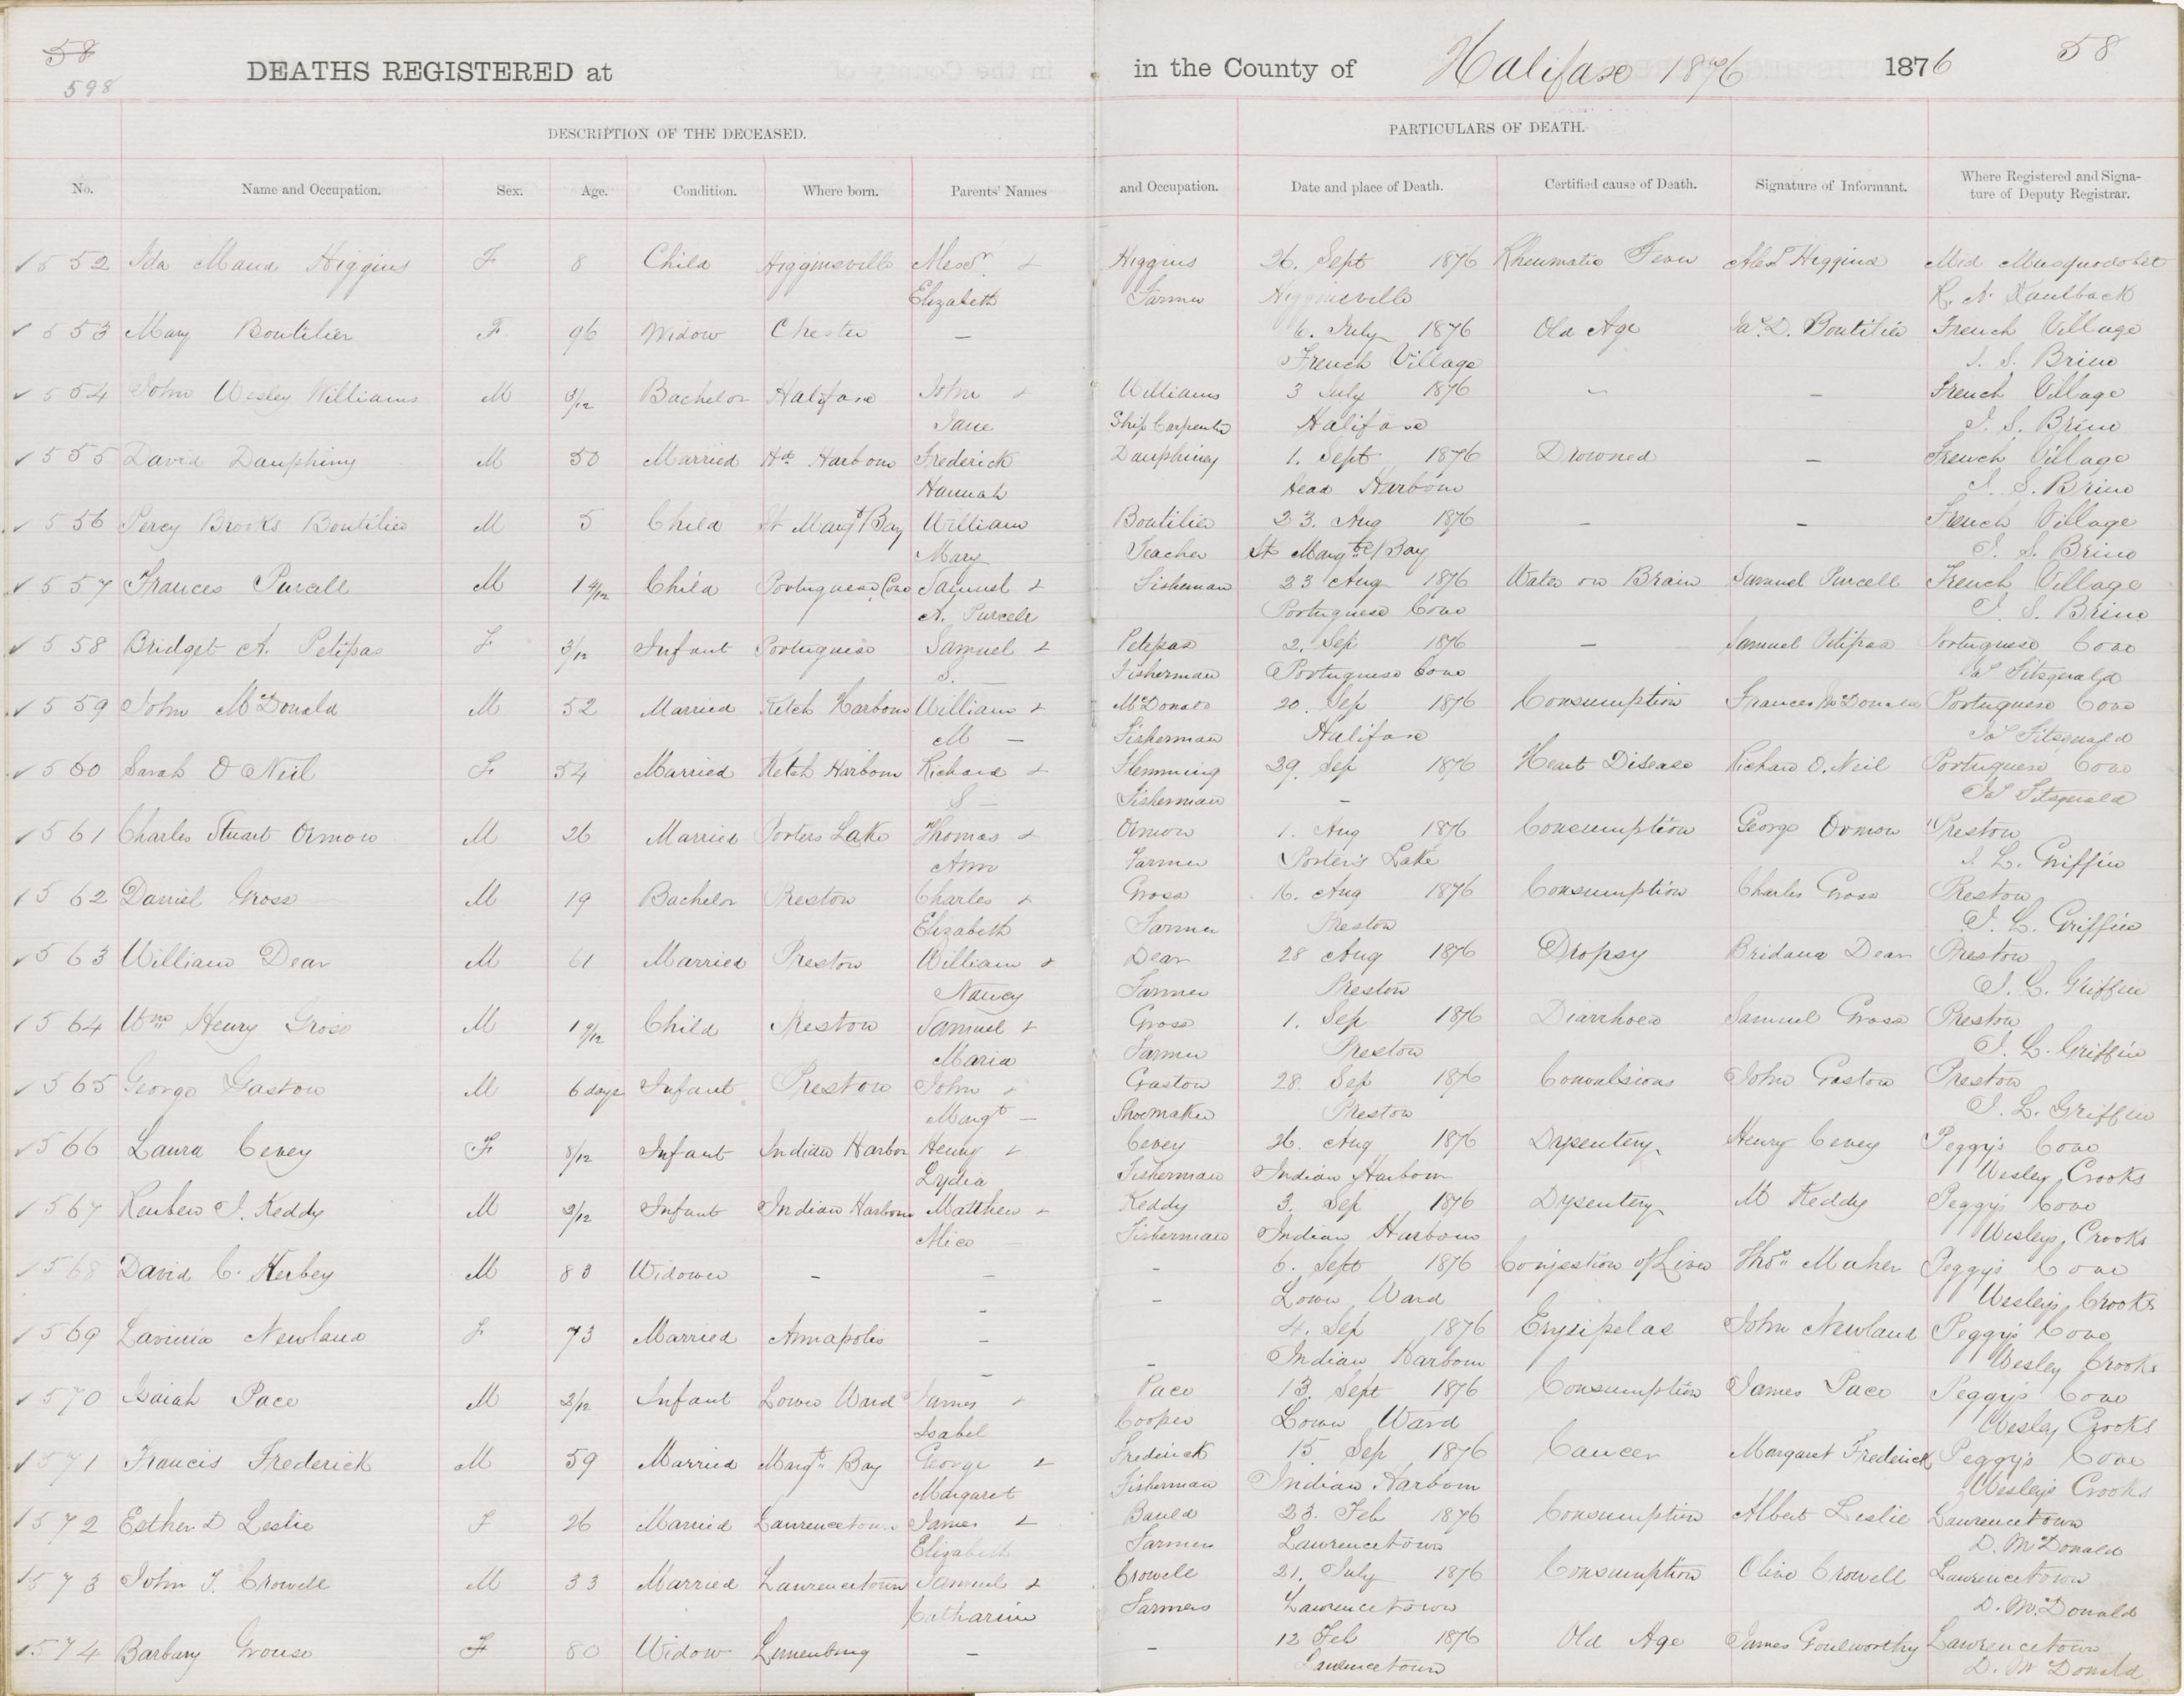 58
598
DEATHS REGISTERED at in the County of Halifax 1876 1876 58
DESCRIPTION OF THE DECEASED. PARTICULARS OF DEATH.
No. Name and Occupation. Sex. Age. Condition. Where born. Parents' Names and Occupation. Date and place of Death. Certified cause of Death. Signature of Informant. Where Registered and Signa-
ture of Deputy Registrar.
1552 Ida Maud Higgins F 8 Child Higginsville Alexdr. & Higgins 26. Sept 1876 Rheumatic Fever Alexr Higgins Mid Musquodobit
Elizabeth Farmer Higginsville R. N. Kaulback
553 Mary Boutilier F 96 Widow Chester — 6. July 1876 Old Age Jas. D. Boutilier French Village
French Village J. S. Brine
554 John Wesley Williams M 3/12 Bachelor Halifax John & Williams 3 July 1876 — — French Village
Jane Ship Carpenter Halifax J. S. Brine
555 David Dauphiny M 50 Married Hd. Harbour Frederick Dauphiney 1. Sept 1876 Drowned — French Village
Hannah Head Harbour J. S. Brine
556 Percy Brooks Boutilier M 5 Child St Margt Bay William Boutilier 23. Aug 1876 — — French Village
Mary Teacher St Margte Bay J. S. Brine
557 Frances Purcell M 1 4/12 Child Portuguese Cove Samuel & Fisherman 23 Aug 1876 Water on Brain Samuel Purcell French Village
A. Purcell Portuguese Cove J. S. Brine
558 Bridget A. Petipas F 3/12 Infant Portuguese Samuel & Petepas 2. Sep 1876 — Samuel Petipas Portuguese Cove
S. — Fisherman Portuguese Cove Jas Fitsgerald
559 John McDonald M 52 Married Ketch Harbour William & McDonald 20. Sep 1876 Consumption Frances McDonald Portuguese Cove
M — Fisherman Halifax Jas Fitsgerald
560 Sarah O Neil F 54 Married Ketch Harbour Richard & Flemming 29. Sep 1876 Heart Disease Richard O. Neil Portuguese Cove
S — Fisherman — Jas Fitsgerald
1561 Charles Stuart Ormon M 26 Married Porters Lake Thomas & Ormon 1. Aug 1876 Consumption George Ormon Preston
Ann Farmer Porter's Lake J. L. Griffin
1562 Daniel Gross M 19 Bachelor Preston Charles & Gross 16. Aug 1876 Consumption Charles Gross Preston
Elizabeth Farmer Preston J. L. Griffin
563 William Dear M 61 Married Preston William & Dear 28 Aug 1876 Dropsy Dear Preston
Nancy Farmer Preston J. L. Griffin
1564 Wm Henry Gross M 1 9/12 Child Preston Samuel & Gross 1. Sep 1876 Diarrhoea Samuel Gross Preston
Maria Farmer Preston J. L. Griffin
565 George Gaston M 6 days Infant Preston John & Gaston 28. Sep 1876 Convulsions John Gaston Preston
Margt — Shoemaker Preston J. L. Griffin
566 Laura Cevey F 8/12 Infant Indian Harbor Henry & Cevey 26. Aug 1876 Dysentery Henry Cevey Peggy's Cove
Lydia Fisherman Indian Harbour Wesley Crooks
567 Reuben J. Keddy M 2/12 Infant Indian Harbour Matthew & Keddy 3. Sep 1876 Dysentery M Keddy Peggy's Cove
Fisherman Indian Harbour Wesley Crooks
568 David C. Kerbey M 83 Widower — — — 6. Sept 1876 Conjestion of Liver Thos. Maher Peggy's Cove
— — Lower Ward Wesley Crooks
569 Lavinia Newland F 73 Married Annapolis — 4. Sep 1876 Erysipelas John Newland Peggy's Cove
— — Indian Harbour Wesley Crooks
1570 Isaiah Pace M 2/12 Infant Lower Ward James & Pace 13. Sept 1876 Consumption James Pace Peggy's Cove
Isabel Cooper Lower Ward Wesley Crooks
1571 Francis Frederick M 59 Married Margts Bay George & Frederick 15 Sep 1876 Cancer Margaret Frederick Peggy's Cove
Margaret Fisherman Indian Harbour Wesley Crooks
1572 Esther D Leslie F 26 Married Lawrencetown James & Bauld 23. Feb 1876 Consumption Albert Leslie Lawrencetown
Elizabeth Farmer Lawrencetown D. McDonald
1573 John T. Crowell M 33 Married Lawrencetown Samuel & Crowell 21. July 1876 Consumption Olive Crowell Lawrencetown
Catharine Farmer Lawrencetown D. McDonald
1574 Barbary Grouse F 80 Widow Lunenburg — — 12 Feb 1876 Old Age James Lawrencetown
Lawrencetown D. McDonald